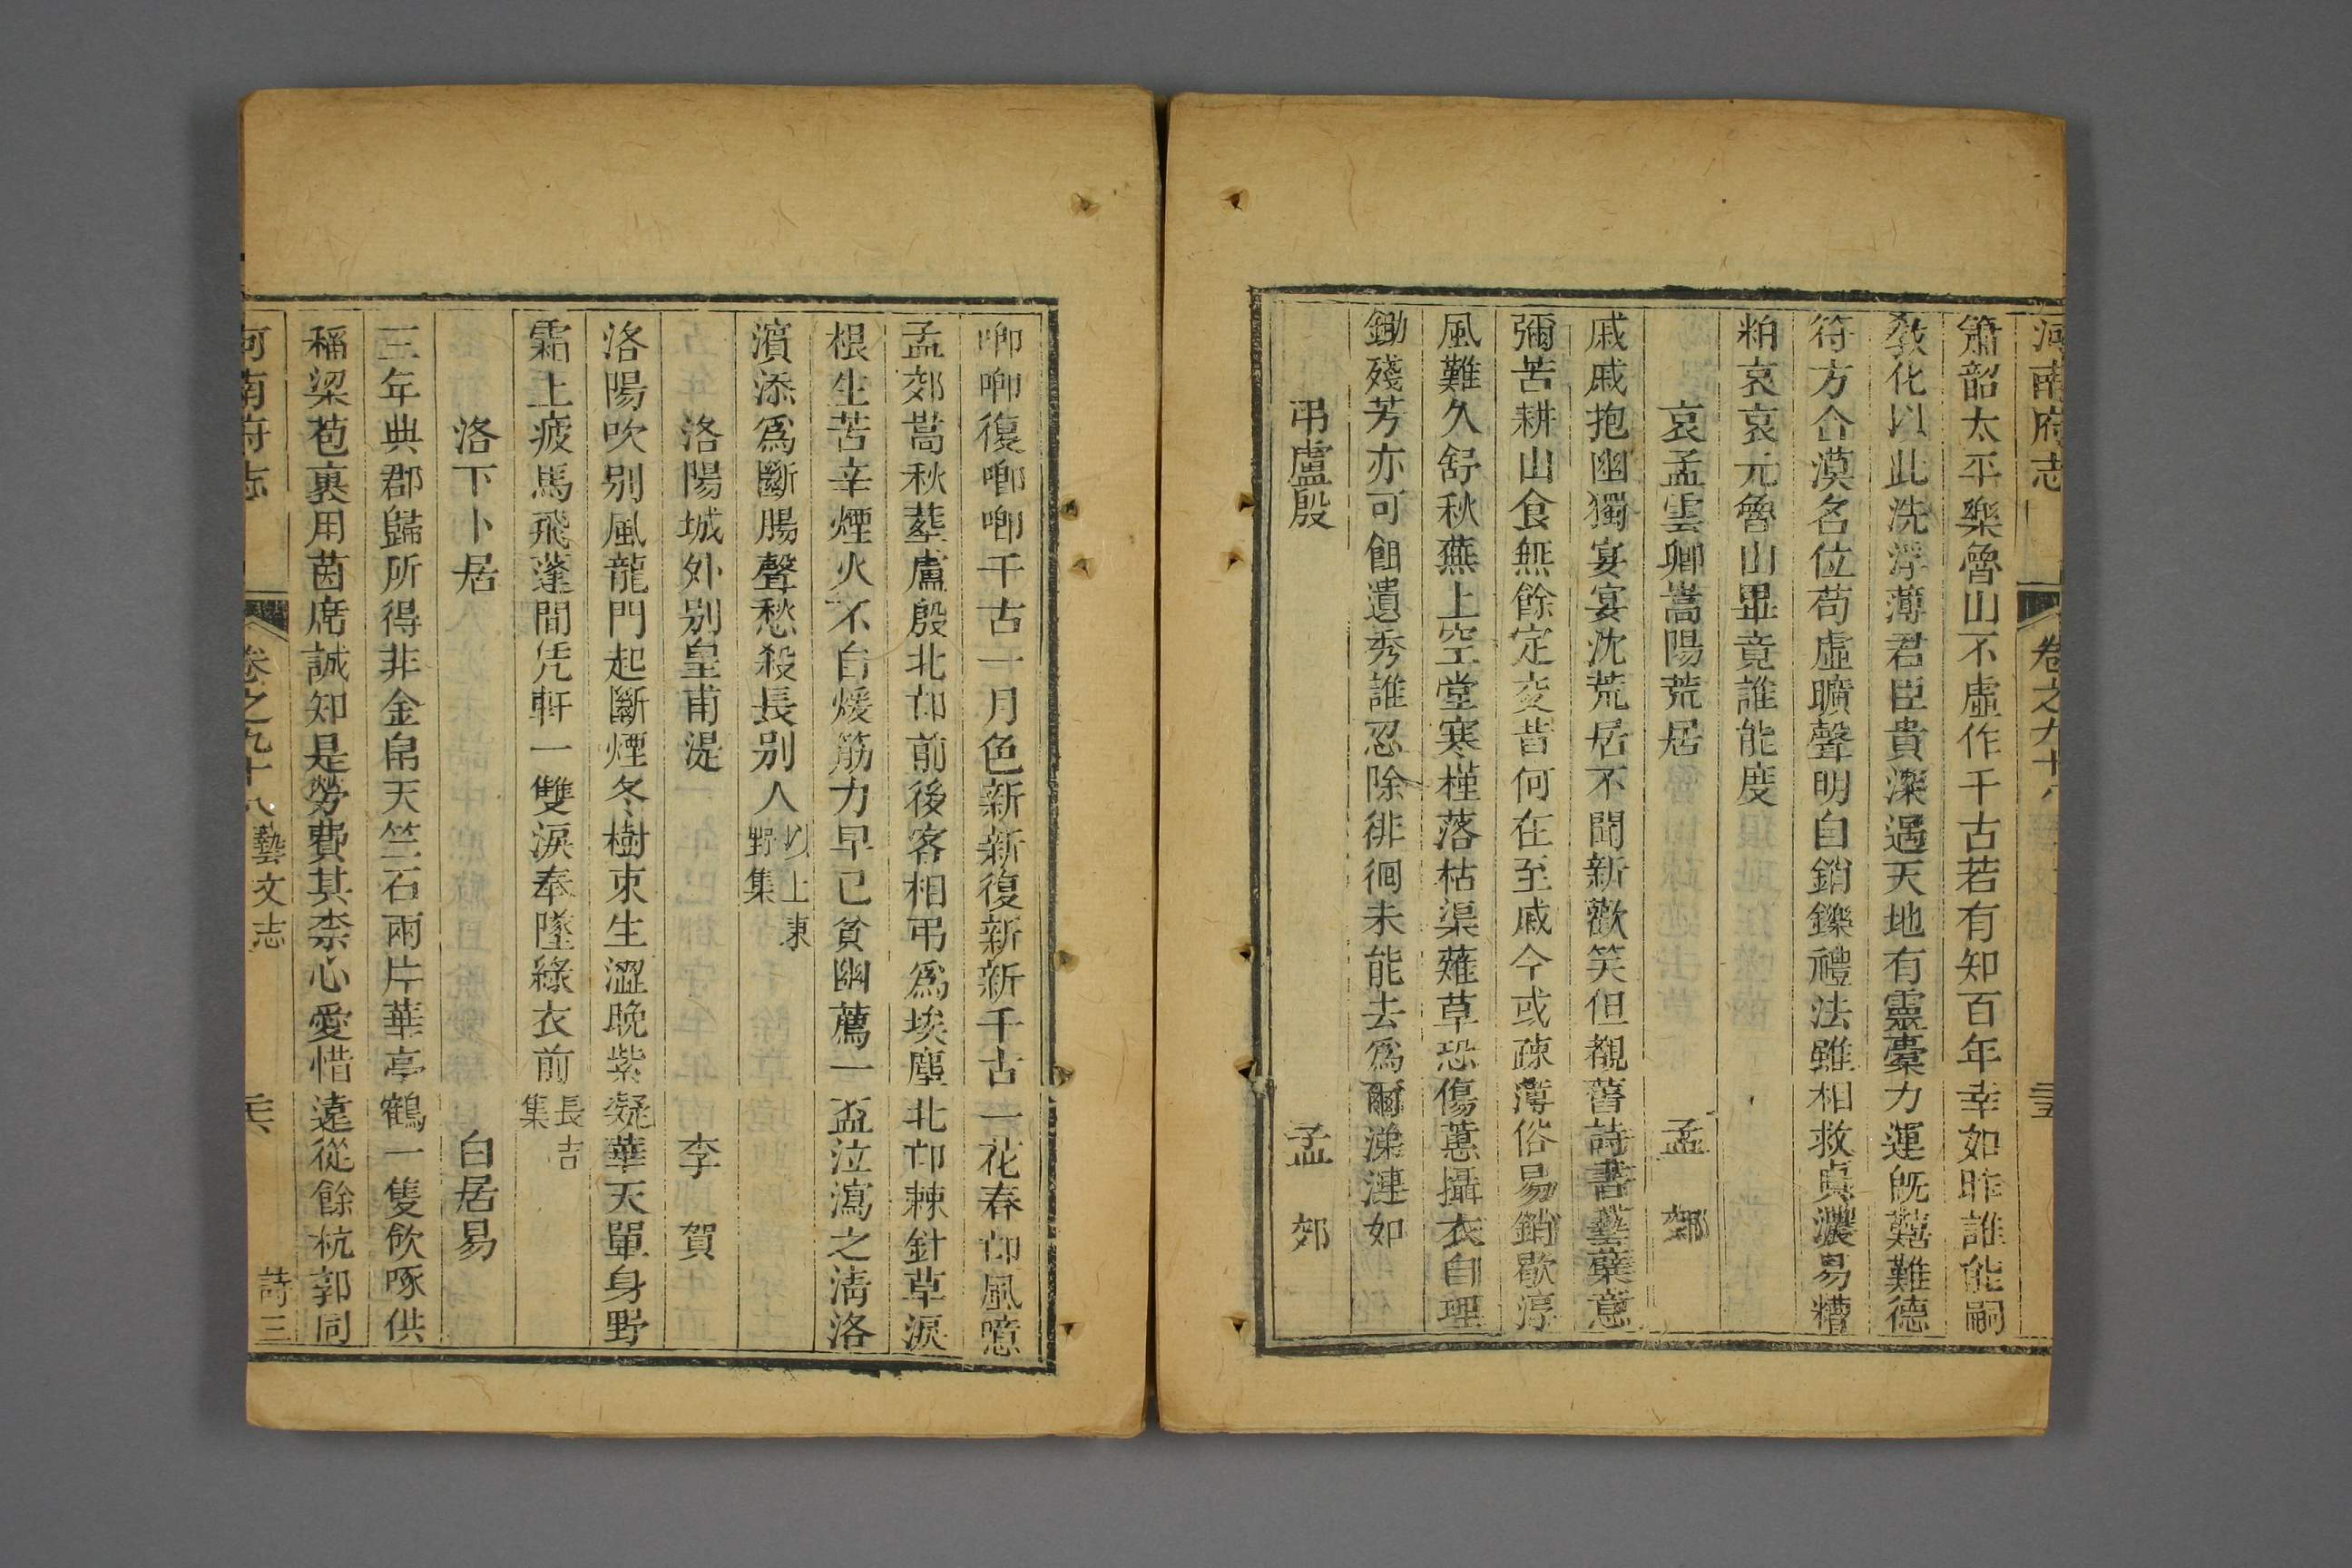 河南府志 卷之九十八 二十五
簫韶太平樂魯山不虛作千古若有知百年幸如昨誰能嗣
教化以此洗浮薄君臣貴深遇天地有靈橐力運旣艱難德
符方合漠名位苟虛曠聲明自銷鑠禮法雖相救貞濃易糟
粕哀哀元魯山畢竟誰能度
哀孟雲卿嵩陽荒居 孟郊
戚戚抱幽獨宴宴沈荒居不聞新歡笑但覩舊詩書藝蘗意
彌苦耕山食無餘定交昔何在至戚今或疎薄俗易銷歇淳
風難久舒秋蕪上空堂寒槿落枯渠薙草恐傷蕙攝衣自理
鋤殘芳亦可餌遺秀誰忍除徘徊未能去爲爾涕漣如
弔盧殷 孟郊
唧唧復唧唧千古一月色新新復新新千古一花春邙風噫
孟郊嵩秋葬盧殷北邙前後客相弔爲埃塵北邙棘針草淚
根生苦辛煙火不自煖筋力早已貧幽薦一盃泣瀉之淸洛
濱添爲斷腸聲愁殺長別人以上東野集
洛陽城外別皇甫湜 李賀
洛陽吹別風龍門起斷煙冬樹束生澀晚紫凝華天單身野
霜上疲馬飛蓬間凭軒一雙淚奉墜綠衣前長吉集
洛下卜居 白居易
三年典郡歸所得非金帛天竺石兩片華亭鶴一隻飮啄供
稻粱苞裹用茵席誠知是勞費其柰心愛惜遠從餘杭郭同
河南府志 卷之九十八藝文志 二十六 詩三